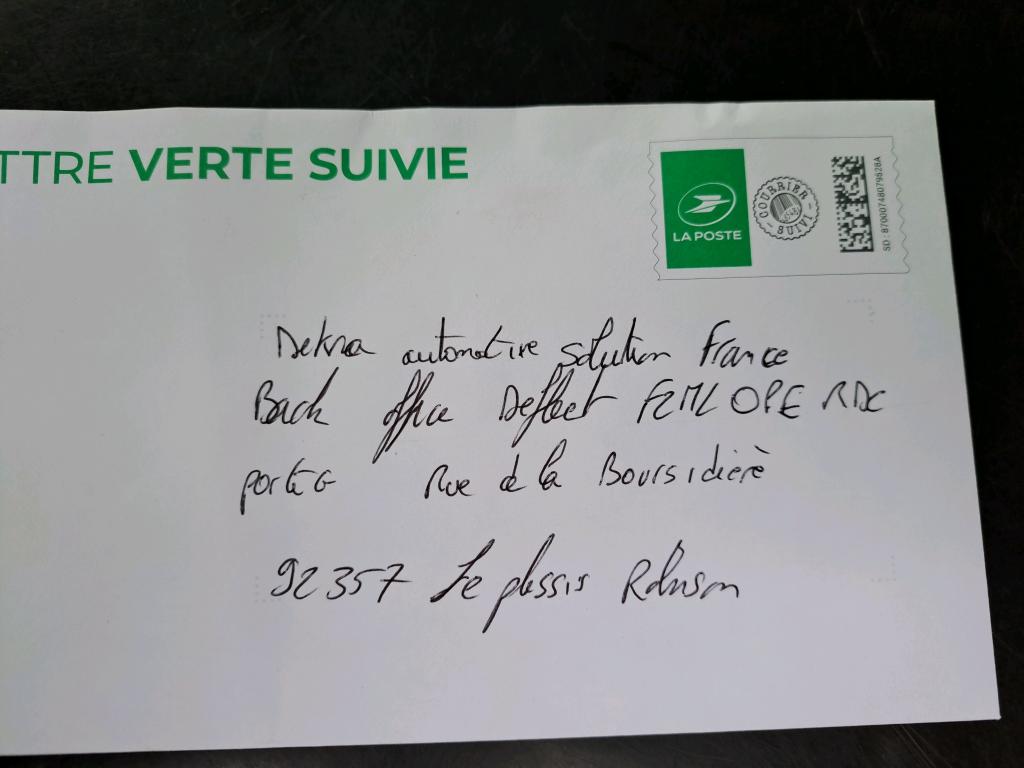 TTRE VERTE SUIVIE
LA POSTE
COURRIER SUIVI
SD : 87000748079628A
Dekra automotive solution France
Back office Defleet OPE RDC
porte G Rue de la Boursidière
92357 Le plessis Robinson